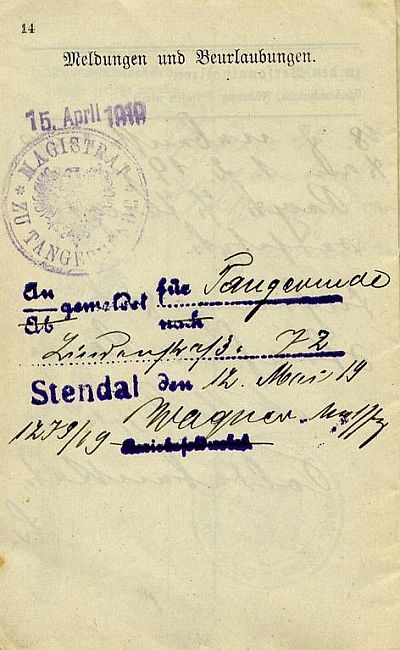 14
Meldungen und Beurlaubungen.
15. April 1919
MAGISTRAT
ZU TANGER
An
gemeldet für Tangermünde
Ab nach
Lindenstraße 72
Stendal den 12. Mai 19
1279/19 Wagner
Bezirksfeldwebel